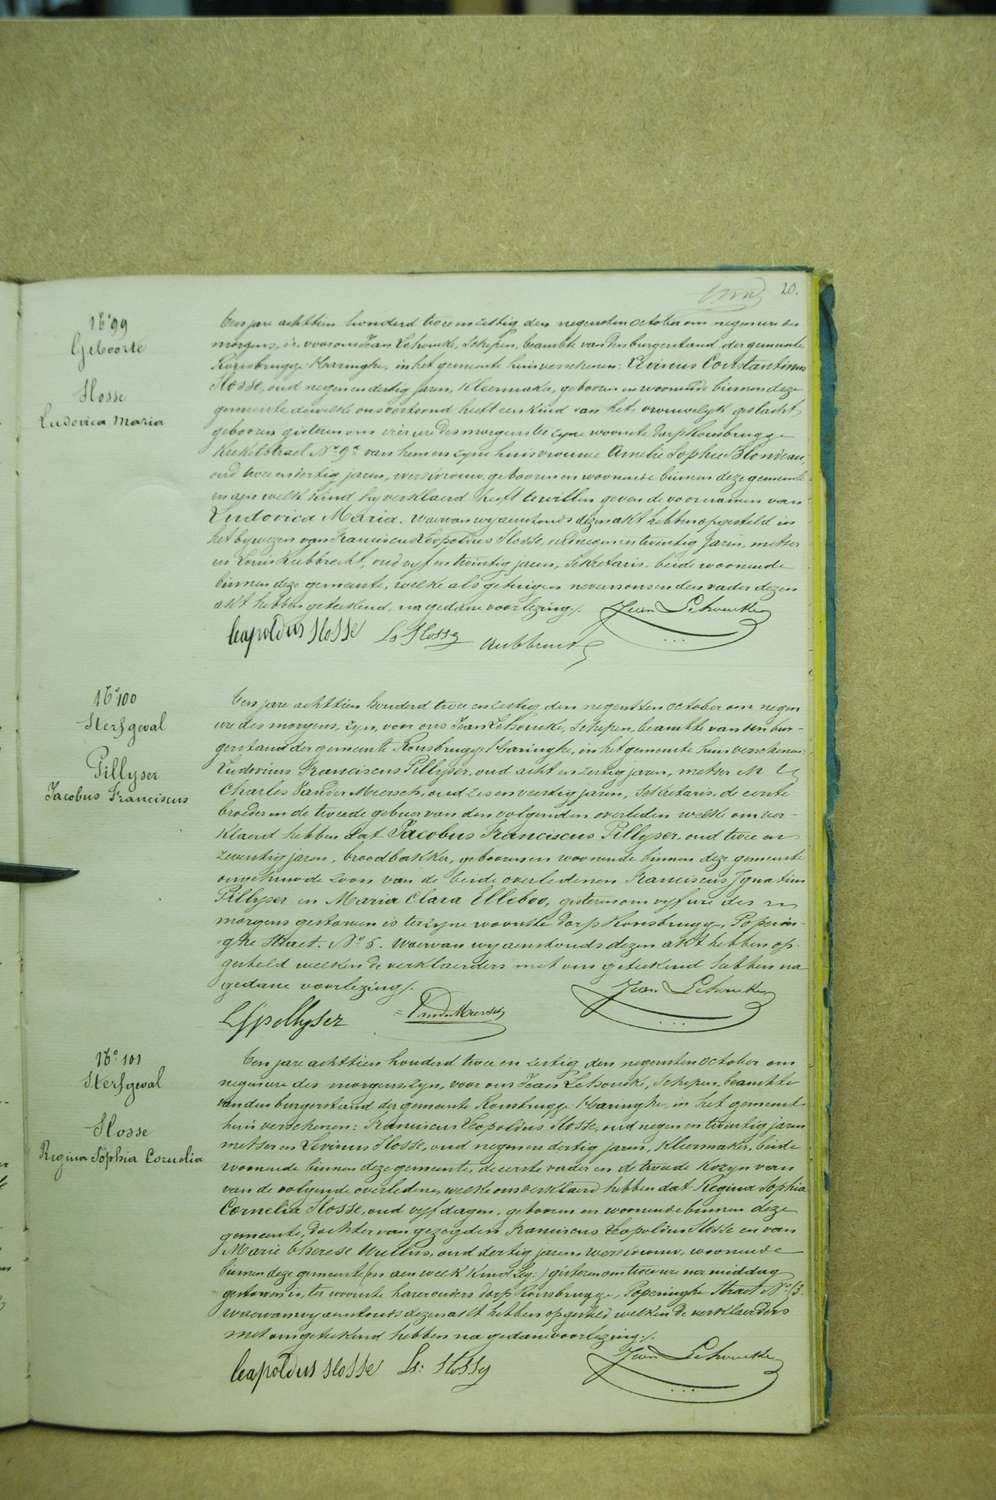 20.
N° 99
Geboorte
Slosse
Ludovica Maria
Ten jare achttien honderd twee en zestig den negensten October om negen ure des
morgens, is voor ons Jean Lehoucke, Schepen, beambte van den burgerstand der gemeente
Rousbrugge Haringhe, in het gemeente huis verschenen: Livinus Constantinus
Slosse, oud negen en dertig jaren, kleermaker, geboren en woonende binnen deze
gemeente, dewelke ons vertoond heeft een kind van het vrouwelyk geslacht,
geboren gisteren om vier ure des morgens ter zyne woonste dorp Rousbrugge
straet N° 9 van hem en zyne huisvrouwe Amelie Sophie Blondeau,
oud twee en dertig jaren, werkvrouw, geboren en woonende binnen deze gemeente
en aen welk kind hy verklaerd heeft te willen geven de voornamen van
Ludovica Maria. Waervan wy aenstonds dezen akt hebben opgesteld in
het bywezen van Franciscus Leopoldus Slosse, oud negen en twintig jaren, metser
en Louis Rubbrecht, oud vyf en twintig jaren, Sekretaris beide woonende
binnen deze gemeente, welke als getuigen nevens ons en den vader dezen
akt hebben geteekend, na gedane voorlezing /.
Jean Lehoucke
Leopoldus Slosse Ls Slosse Rubbrecht
N° 100
Sterfgeval
Pillyser
Jacobus Franciscus
Ten jare achttien honderd twee en zestig, den negensten October om negen
ure des morgens, zyn, voor ons Jean Lehoucke, Schepen, beambte van den bur-
gerstand der gemeente Rousbrugge Haringhe, in het gemeente huis verschenen
Ludovicus Franciscus Pillyser, oud acht en zestig jaren, metser en
Charles Vander Meersch, oud zes en veertig jaren, Sekretaris, de eerste
broeder en de tweede gebuer van den volgenden overleden welke ons ver-
klaerd hebben dat Jacobus Franciscus Pillyser, oud twee en
zeventig jaren, broodbakker, geboren en woonende binnen deze gemeente
ongehuwde zoon van de beide overledenen Franciscus Ignatius
Pillyser en Maria Clara Elleboo, gisteren om vyf ure des
morgens gestorven is ter zyne woonste dorp Rousbrugge, Poperin-
ghe Straet. N° 6. Waervan wy aenstonds dezen akt hebben op-
gesteld welken de verklaerders met ons geteekend hebben na
gedane voorlezing /.
Jean Lehoucke
LFpillyser VanderMeersch
N° 101
Sterfgeval
Slosse
Regina Sophia Cornelia
Ten jare achttien honderd twee en zestig, den negensten October om
negen ure des morgens zyn, voor ons Jean Lehoucke, Schepen, beambte
van den burgerstand der gemeente Rousbrugge Haringhe, in het gemeente
huis verschenen: Franciscus Leopoldus Slosse, oud negen en twintig jaren
metser en Livinus Slosse, oud negen en dertig jaren, kleermaker, beide
woonende binnen deze gemeente, de eerste vader en de tweede kozyn van
van de volgende overledene, welke ons verklaerd hebben dat Regina Sophia
Cornelia Slosse, oud vyf dagen, geboren en woonende binnen deze
gemeente, dochter van gezegden Franciscus Leopoldus Slosse en van
Marie Therese Wullens, oud dertig jaren, werkvrouw, woonende
binnen deze gemeente gisteren om twee ure na middag
gestorven is, ter woonste harer ouders dorp Rousbrugge, Poperinghe Straet N° 13.
Waervan wy aenstonds dezen akt hebben opgesteld welken de verklaerders
met ons geteekend hebben na gedane voorlezing /.
Jean Lehoucke
Leopoldus Slosse Ls: Slosse